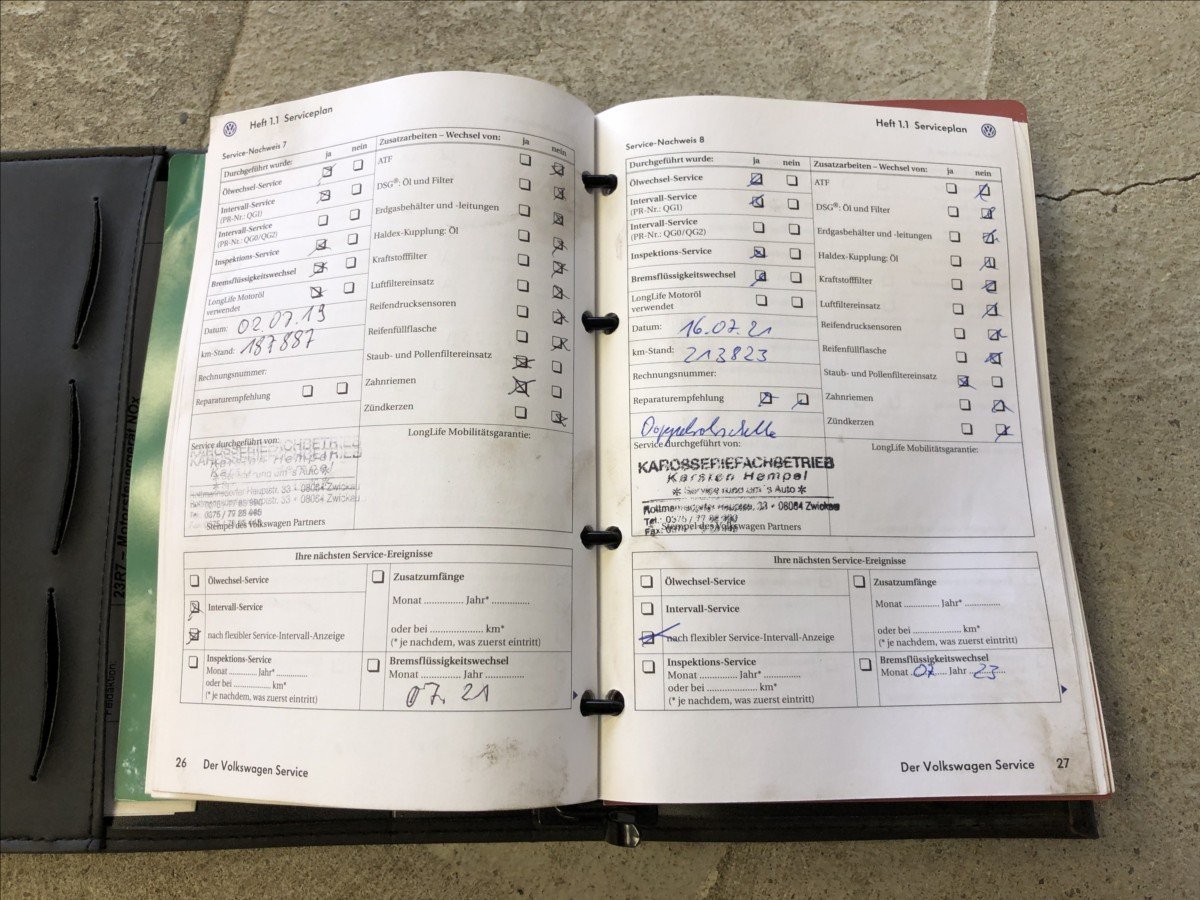 Heft 1.1 Serviceplan
Service-Nachweis 7
Durchgeführt wurde: ja nein
Ölwechsel-Service
Intervall-Service
(PR-Nr.: QG1)
Intervall-Service
(PR-Nr.: QG0/QG2)
Inspektions-Service
Bremsflüssigkeitwechsel
LongLife Motoröl
verwendet
Datum: 02.07.19
km-Stand: 187887
Rechnungsnummer:
Reparaturempfehlung
Zusatzarbeiten – Wechsel von: ja nein
ATF
DSG®: Öl und Filter
Erdgasbehälter und -leitungen
Haldex-Kupplung: Öl
Kraftstofffilter
Luftfiltereinsatz
Reifendrucksensoren
Reifenfüllflasche
Staub- und Pollenfiltereinsatz
Zahnriemen
Zündkerzen
Service durchgeführt von:
KAROSSERIEFACHBETRIEB
Rottmannsdorfer Hauptstr. 33 • 08064 Zwickau
Stempel des Volkswagen Partners
LongLife Mobilitätsgarantie:
Ihre nächsten Service-Ereignisse
Ölwechsel-Service
Intervall-Service
nach flexibler Service-Intervall-Anzeige
Inspektions-Service
Monat ........... Jahr* ...........
oder bei ............... km*
(* je nachdem, was zuerst eintritt)
Zusatzumfänge
Monat ............... Jahr* ...............
oder bei ..................... km*
(* je nachdem, was zuerst eintritt)
Bremsflüssigkeitwechsel
Monat ........... Jahr ...............
07. 21
26 Der Volkswagen Service
Heft 1.1 Serviceplan
Service-Nachweis 8
Durchgeführt wurde: ja nein
Ölwechsel-Service
Intervall-Service
(PR-Nr.: QG1)
Intervall-Service
(PR-Nr.: QG0/QG2)
Inspektions-Service
Bremsflüssigkeitwechsel
LongLife Motoröl
verwendet
Datum: 16.07.21
km-Stand: 213823
Rechnungsnummer:
Reparaturempfehlung
Zusatzarbeiten – Wechsel von: ja nein
ATF
DSG®: Öl und Filter
Erdgasbehälter und -leitungen
Haldex-Kupplung: Öl
Kraftstofffilter
Luftfiltereinsatz
Reifendrucksensoren
Reifenfüllflasche
Staub- und Pollenfiltereinsatz
Zahnriemen
Zündkerzen
Service durchgeführt von:
KAROSSERIEFACHBETRIEB
Karsten Hempel
* Service rund um's Auto *
Hauptstr. 33 • 08064 Zwickau
Stempel des Volkswagen Partners
LongLife Mobilitätsgarantie:
Ihre nächsten Service-Ereignisse
Ölwechsel-Service
Intervall-Service
nach flexibler Service-Intervall-Anzeige
Inspektions-Service
Monat ........... Jahr* ...........
oder bei ............... km*
(* je nachdem, was zuerst eintritt)
Zusatzumfänge
Monat ............... Jahr* ...............
oder bei ..................... km*
(* je nachdem, was zuerst eintritt)
Bremsflüssigkeitwechsel
Monat 07 Jahr 23
Der Volkswagen Service 27
23R7 – Motorsteuergerät NOx